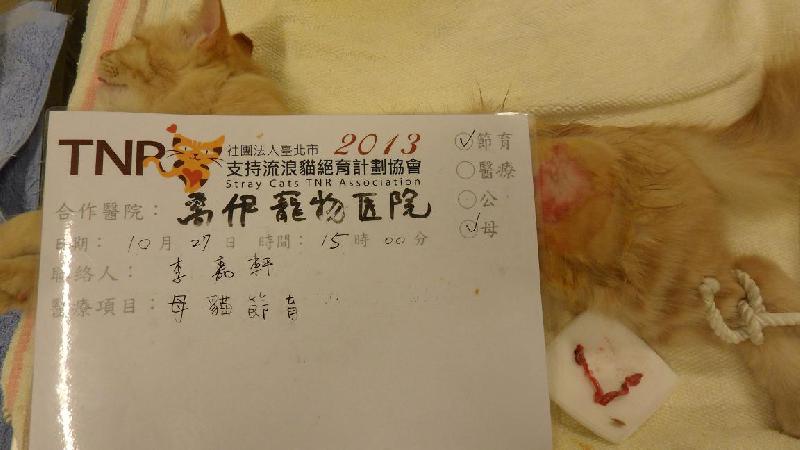 TNR 社團法人臺北市 2013
支持流浪貓絕育計劃協會
Stray Cats TNR Association
✓節育
醫療
公
✓母
合作醫院：萬伊寵物医院
日期：10月27日 時間：15時00分
聯絡人：李嘉軒
醫療項目：母貓節育